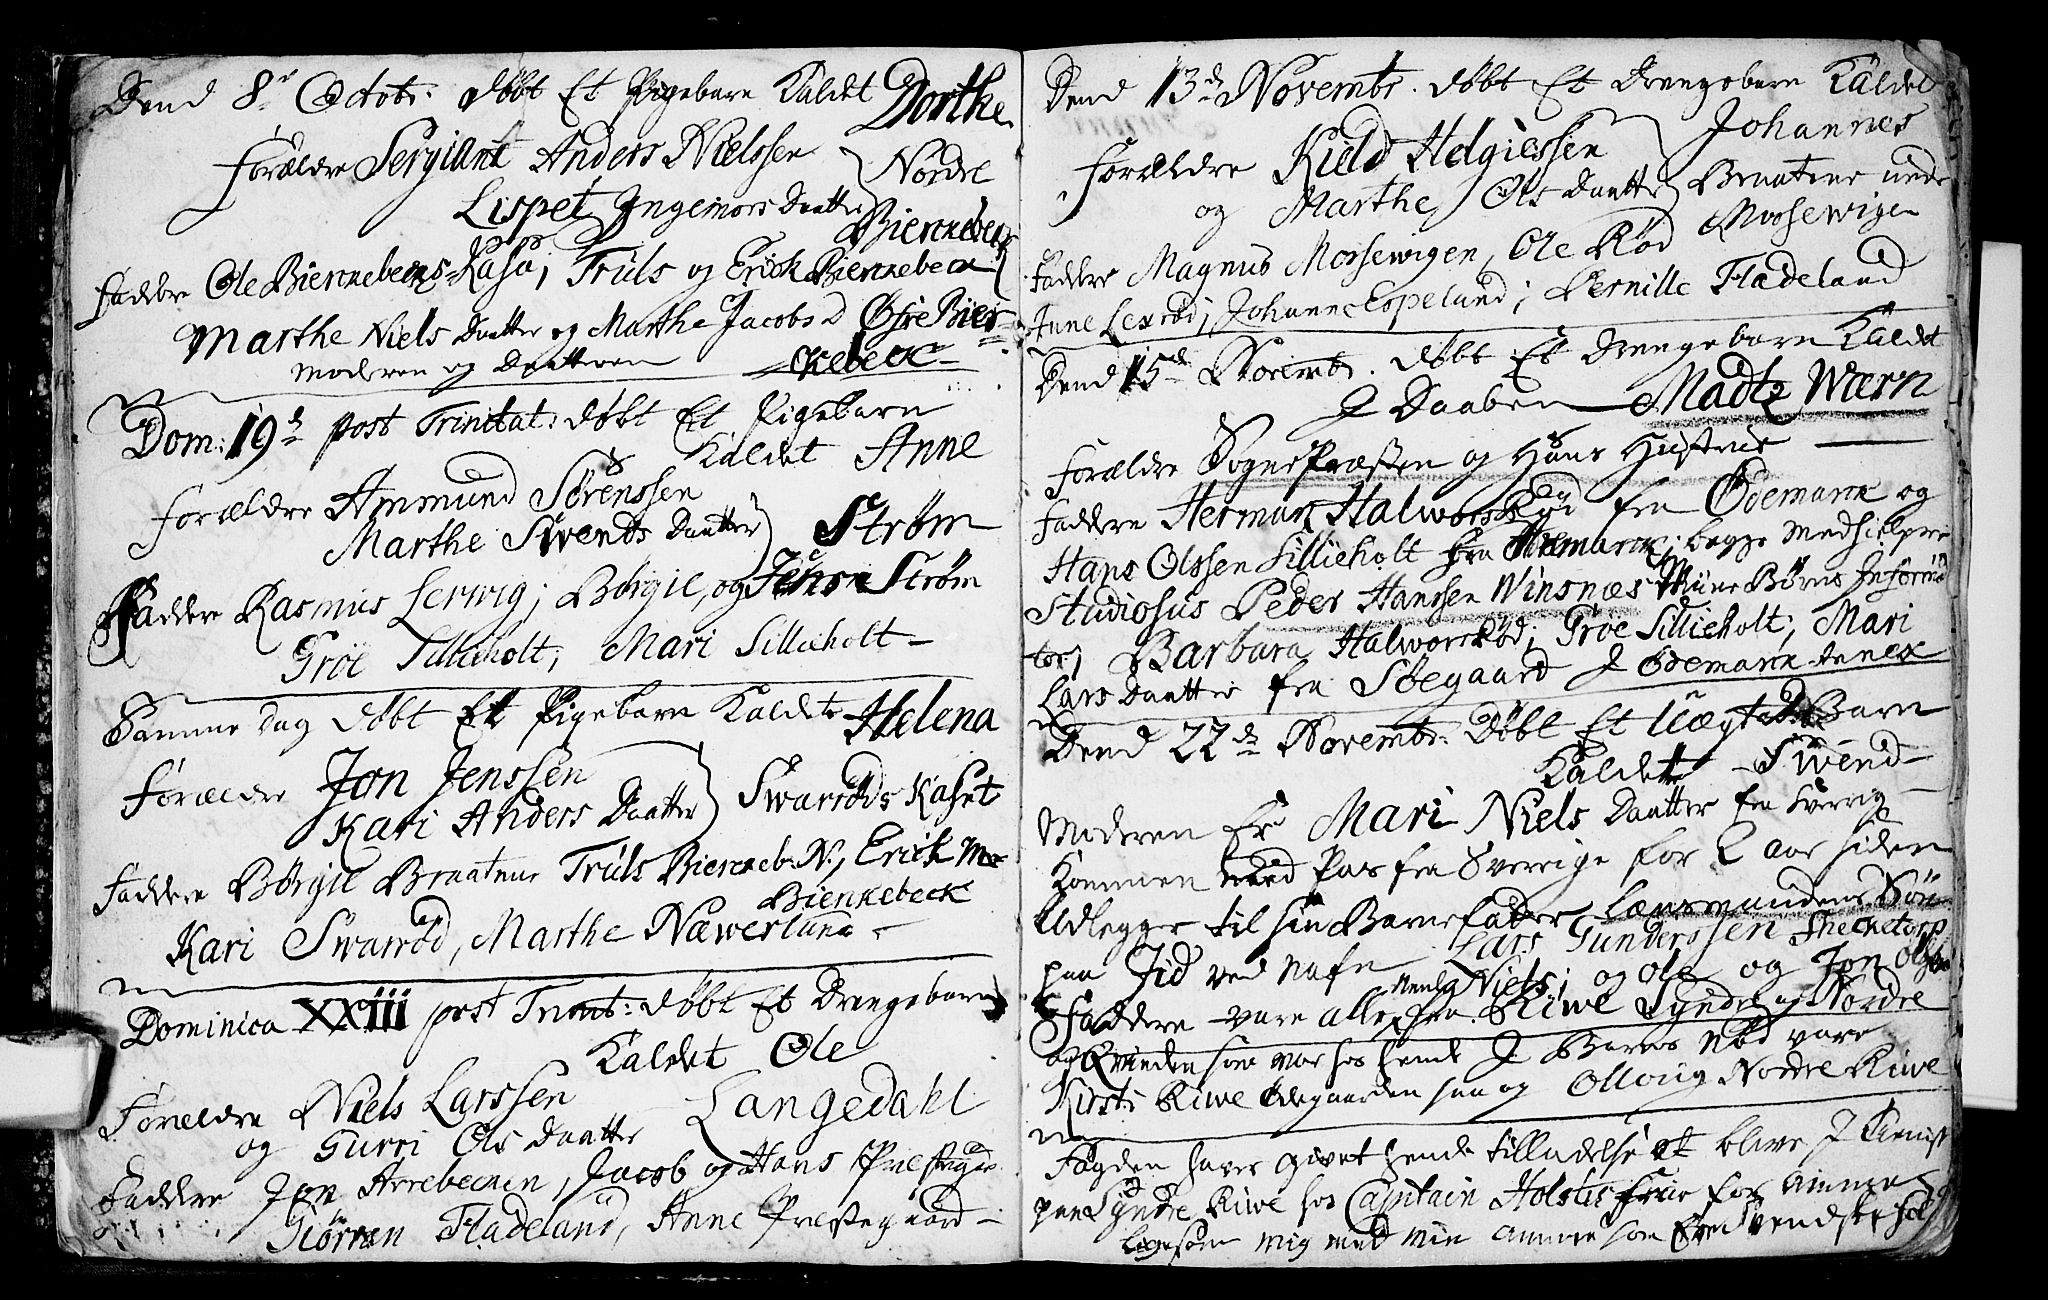 Dend 8de Octobr: døbt Et Pigebarn Kaldet Dorthe
Forældre Sergiant Anders Nielssen
Lispet Ingemors Daatter
Nordre
Biennebeck
Faddre Ole Biennebechs-Kasa, Truls og Erick Biennebeck
Marthe Niels Daatter og Marthe Jacobs D Østre Bien=
Moderen og Daatteren nebeck
Dom: 19de post Trinitat: døbt Et Pigebarn
Kaldet Anne
Forældre Ammund Sørenssen
Marthe Swends Daatter Strøm
Faddre Rasmus Lerwig; Børgil, og Jens Strøm
Groe Sillieholt; Mari Sillieholt
Samme Dag døbt Et Pigebarn Kaldet Helena
Forældre Jon Jenssen
Kari Anders Daatter Swarrøds Kaset
Faddre Børgil Braatene Truls Bienneb: N., Erick
Biennebeck
Kari Swarrød, Marthe Næwerlund
Dominica XXIII post Trinit: døbt Et Drengebarn
Kaldet Ole
Forældre Niels Larssen
og Gurri Ols Daatter Langedahl
Faddre Jon Arrebechen, Jacob og Hans Prestegrd
Giørran Fladeland, Anne Prestegaard
Dend 13de Novembr. døbt Et Drengebarn Kaldet
Johannes
Forældre Kield Helgiessen
og Marthe Ols Daatter Braatene unde
Mossewigen
Faddre Magnus Mossewigen, Ole Rød
Anne Lexrød; Johanne Espeland; Pernille Fladeland
Dend 15de Novembr. døbt Et Drengebarn Kaldet
J Daaben Madtz Wærn
Forældre Sogne Præsten og Hans Hustrue
Faddre Herman Halworsrød fra Ødemark og
Hans Olssen Sillieholt fra Ødemarck; begge Medhielpere
Studiosus Peder Hanssen Winsnæs Mine Børns Informa
tor; Barbara Halworsrød; Groe Sillieholt; Mari
Lars Daatter fra Søegaard J Ødemark Annex
Dend 22de Novembr: Døbt Et Uægte Barn
Kaldet Swend
Moderen Er Mari Niels Daatter fra Sverig
Kommen med Pas fra Sverrige for 2 aar siden
Udlegger til sin Barnefader Lænsmandens Søn
paa Jid ved Nafn Lars Gunderssen
Faddre vare alle fra Niels; og Ole og Jon
Riwe Syndre og Nordre
og Qvinden som var hos hende J Barns Nød vare
Kirsti Riwe Ødegaarden og Olloug Nordre Riwe
Fogden haver givet hende tilladelse at blive J Tieniste
paa Syndre Riwe hos Capitain Holsts Frue for amme
ligesom mig med min amme som Er Svendsk